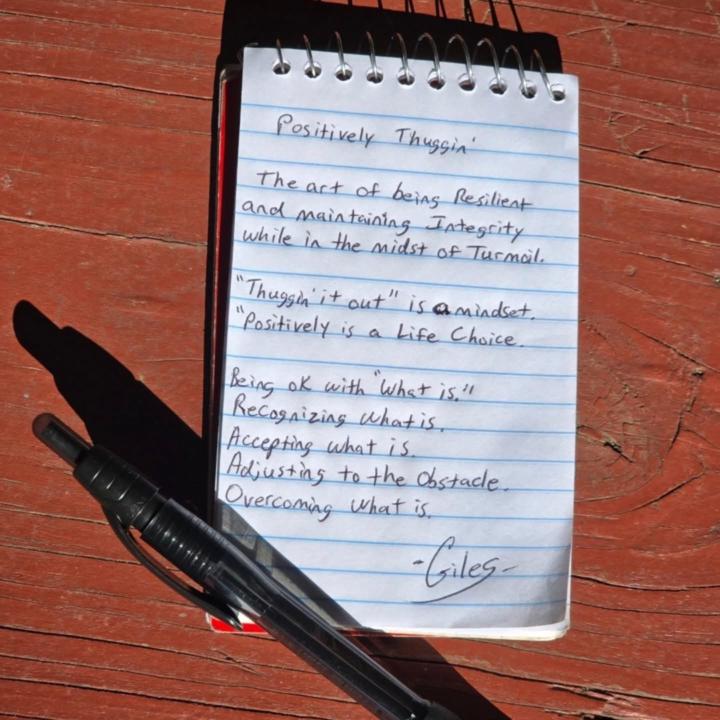 Positively Thuggin'
The art of being Resilient
and maintaining Integrity
while in the midst of Turmoil.
"Thuggin' it out" is a mindset.
"Positively is a Life Choice.
Being OK with "What is."
Recognizing what is.
Accepting what is.
Adjusting to the Obstacle.
Overcoming what is.
-Giles-